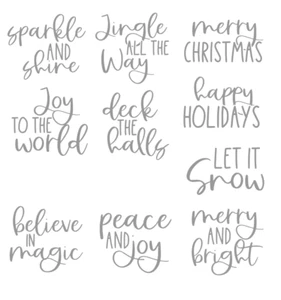 sparkle
AND
shine
Jingle
ALL THE
Way
merry
CHRISTMAS
Joy
TO THE
world
deck
THE
halls
happy
HOLIDAYS
LET IT
Snow
believe
IN
magic
peace
AND joy
merry
AND
bright